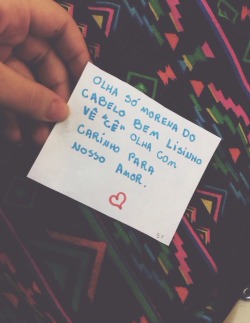 OLHA SÓ MORENA DO
CABELO BEM LISINHO
VÊ "CÊ" OLHA COM
CARINHO PARA
NOSSO AMOR.